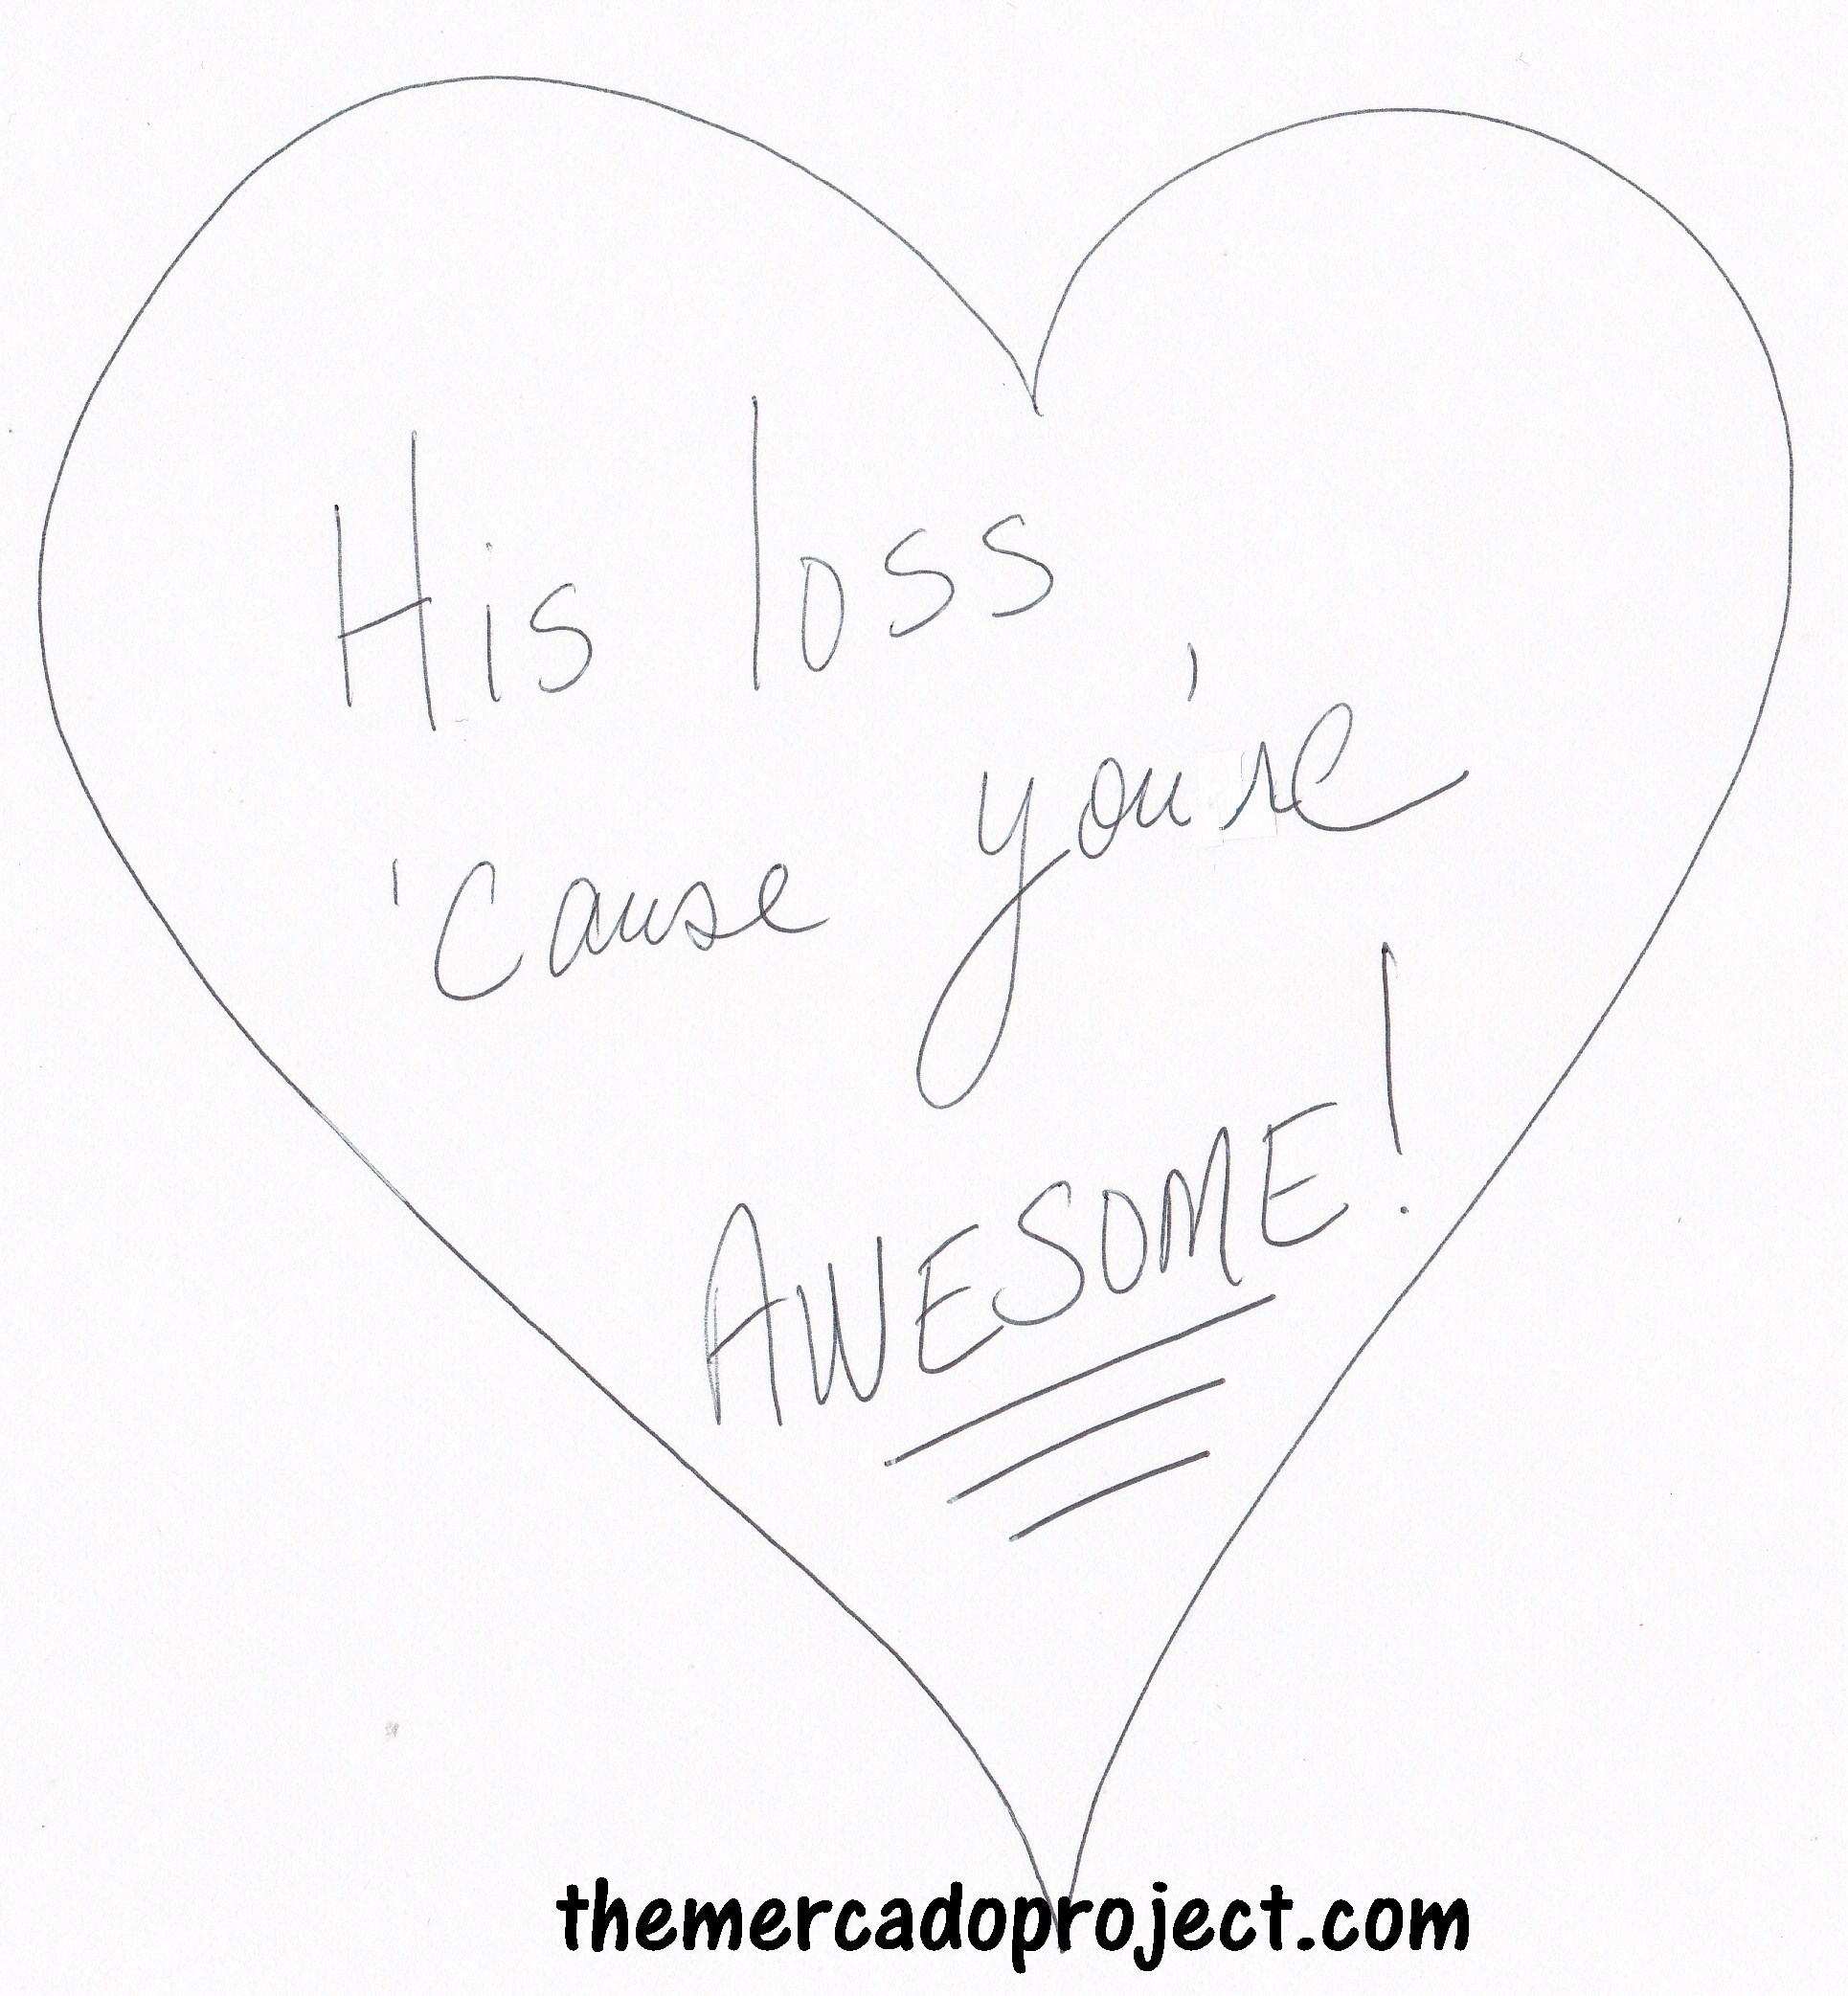 His loss
'cause you're
AWESOME!
themercadoproject.com